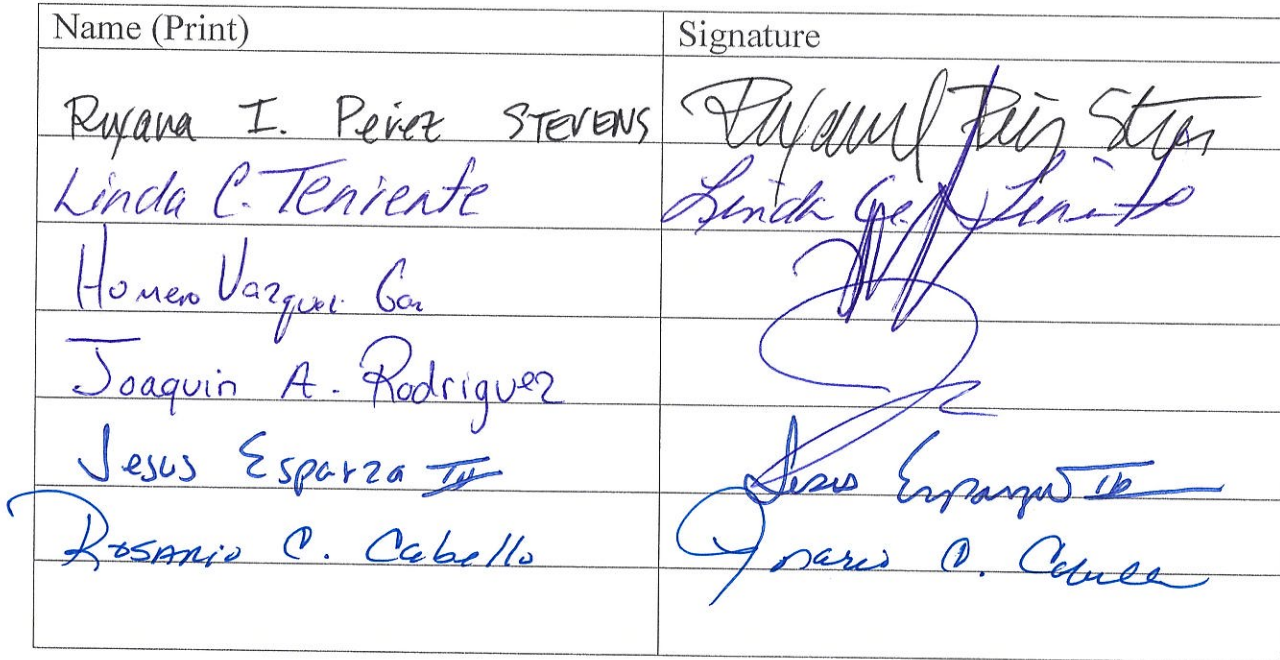 Name (Print) Signature
Ruxana I. Perez STEVENS
Linda C. Teniente Linda
Homero Vazquez
Joaquin A. Rodriguez
Jesus Esparza III Jesus Esparza III
Rosario C. Cabello Rosario C. Cabello